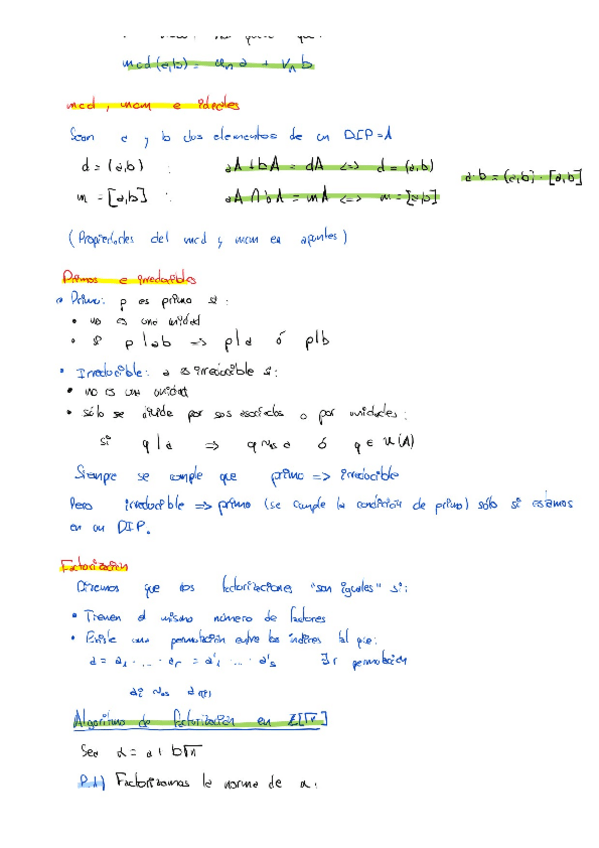 mcd(a,b) = u_n a + v_n b
mcd, mcm e ideales
Sean a y b dos elementos de un DIP=A
d = (a,b) : aA+bA = dA <=> d = (a,b)
a·b = (a,b)·[a,b]
m = [a,b] : aA∩bA = mA <=> m = [a,b]
(Propiedades del mcd y mcm en apuntes)
Primos e irreducibles
• Primo: p es primo si:
• no es una unidad
• si p|ab => p|a ó p|b
• Irreducible: a es irreducible si:
• no es una unidad
• sólo se divide por sus asociados o por unidades:
si q|a => q ~as a ó q ∈ U(A)
Siempre se cumple que primo => irreducible
Pero irreducible => primo (se cumple la condición de primo) sólo si estamos
en un DIP.
Factorización
Diremos que dos factorizaciones "son iguales" si:
• Tienen el mismo número de factores
• Existe una permutación entre los índices tal que:
a = a_1 · ... · a_r = a'_1 · ... · a'_s ∃ r permutación
Algoritmo de factorización en Z[√n]
Sea α = a + b√n
P.1) Factorizamos la norma de α: